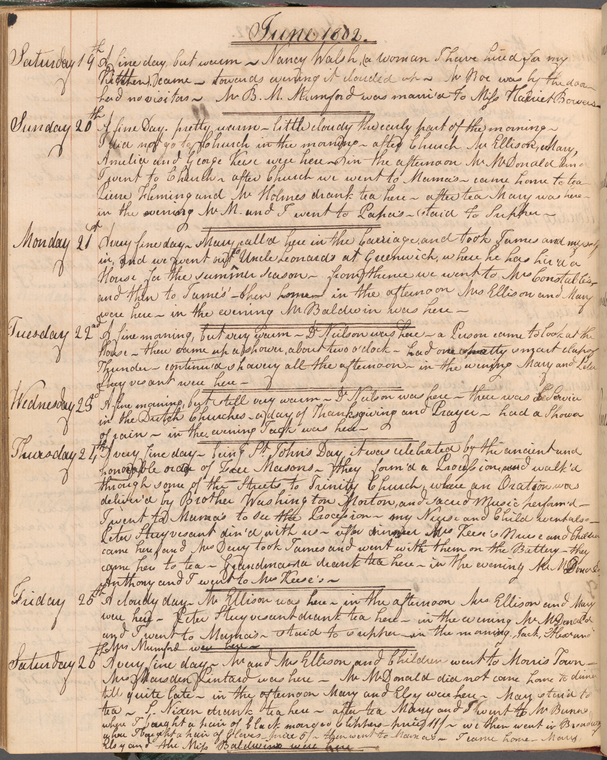 June 1802.
Saturday 19th A fine day, but warm ~ Nancy Walsh, (a woman I have hired for my
Kitchen) came ~ towards evening it clouded up ~ Mr Roe was by the door
had no visitors ~ Mr B. M. Mumford was married to Miss Harriet Bowers ~
Sunday 20th A fine Day. pretty warm ~ little cloudy the early part of the morning ~
I did not go to Church in the morning ~ after Church Mr Ellison, Mary
Amelia and George were here ~ in the afternoon Mr McDonald and
I went to Church ~ after Church we went to Mamas ~ came home to tea
Fleming and Mr Holmes drank tea here ~ after tea Mary was here ~
in the evening Mr M. and I went to Papa's ~ staid to Supper ~
Monday 21st A very fine day ~ Mary call'd here in the Carriage, and took James and myself
in, and we went up to Uncle Leonards at Greenwich, where he has hired a
House for the summer season ~ from thence we went to Mrs Constable's
and then to James's ~ then home ~ in the afternoon Mrs Ellison and Mary
were here ~ in the evening Mr Baldwin was here ~
Tuesday 22nd A fine morning, but very warm ~ Dr Neilson was here ~ a Person came to look at the
House ~ there came up a shower, about two o'clock ~ had one pretty smart clap of
Thunder ~ continued showery all the afternoon ~ in the evening Mary and
Stuyvesant were here ~
Wednesday 23d A fine morning, but still very warm ~ Dr Neilson was here ~ there was Service
in the Dutch Churches ~ a day of Thanksgiving and Prayer ~ had a Shower
of rain ~ in the evening Jack was here ~
Thursday 24th A very fine day ~ being St John's Day, it was celebrated by the ancient and
honorable order of Free Masons ~ they form'd a Procession, and walk'd
through some of the Streets to Trinity Church, where an Oration was
deliver'd by Brother Washington Morton, and sacred Music perform'd ~
I went to Mama's to see the Procession ~ my Nurse and Child went also ~
Peter Stuyvesant din'd with us ~ after dinner Mrs Keese's Nurse and Children
came here, and Mrs Dewy took James and went with them on the Battery ~ they
came here to tea ~ Grandmama drank tea here ~ in the evening Mr McDonald
Anthony and I went to Mrs Keese's ~
Friday 25th A cloudy day ~ Mr Ellison was here ~ in the afternoon Mrs Ellison and Mary
were here ~ Peter Stuyvesant drank tea here ~ in the evening Mr McDonald
and I went to Mama's ~ staid to supper ~ in the morning, Jack, and
Mrs Mumford were here ~
Saturday 26th A very fine day ~ Mr and Mrs Ellison and Children went to Morris Town ~
Mrs Marsden Pintard was here ~ Mr McDonald did not come home to dinner
till quite late ~ in the afternoon Mary and Eley were here ~ Mary staid to
tea ~ drank tea here ~ after tea Mary and I went to Mr
where I bought a pair of black slippers price 11/ ~ we then went in Broadway
where I bought a pair of Gloves price 5/ ~ then went to Mama's ~ I came home ~ Mary
Eley and the Miss Baldwins were here ~